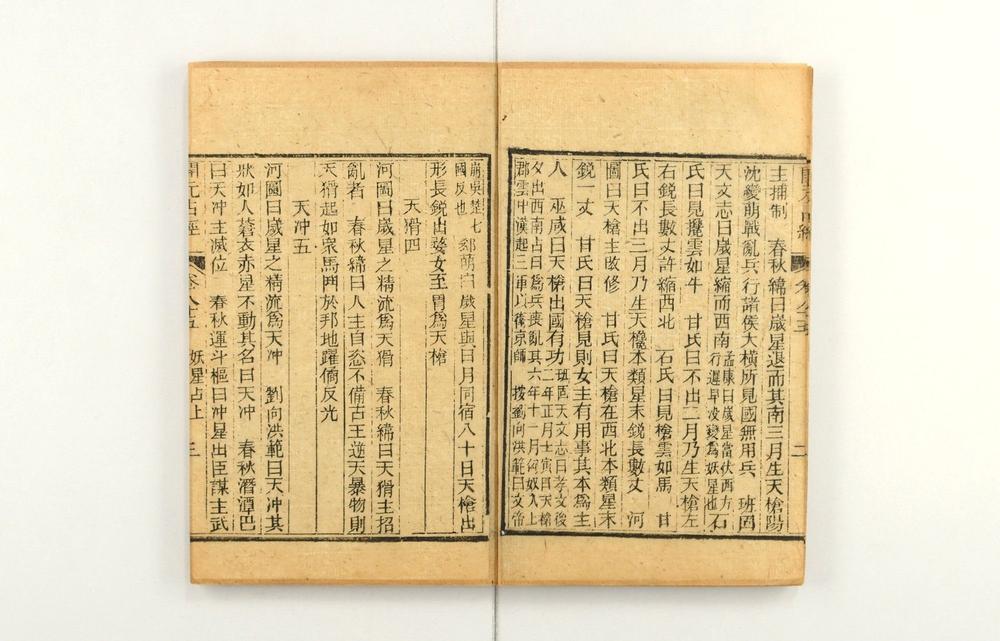 主捕制　春秋緯曰歲星退而其南三月生天槍陽
沈變萌戰亂兵行諸侯大橫所見國無用兵　班固
天文志曰歲星縮而西南孟康曰歲星當伏西方行遲早沒變為妖星也石
氏曰見攙雲如牛　甘氏曰不出二月乃生天槍左
右銳長數丈許縮西北　石氏曰見槍雲如馬　甘
氏曰不出三月乃生天欃本類星末銳長數丈　河
圖曰天槍主　修　甘氏曰天槍在西北本類星末
銳一丈　甘氏曰天槍見則女主有用事其本為主
人　巫咸曰天槍出國有功班固天文志曰孝文後二年正月壬寅
夕出西南占曰為兵喪亂其六年十一月匈奴入上
郡雲中漢起三軍以衛京師　按劉向洪範曰文帝
崩吳楚七國反也郄萌曰歲星與日月同宿八十日天槍出
形長銳出婺女至胃為天槍
天猾四
河圖曰歲星之精流為天猾　春秋緯曰天猾主招
亂者　春秋緯曰人主自恣不備古王逆天暴物則
天猾起如眾馬鬥於邦地躍僑反光
天冲五
河圖曰歲星之精流為天冲　劉向洪範曰天冲其
狀如人蒼衣赤星不動其名曰天冲　春秋潛潭巴
曰天冲主滅位　春秋運斗樞曰冲星出臣謀主武
開元占經　卷八十五　妖星占上　三